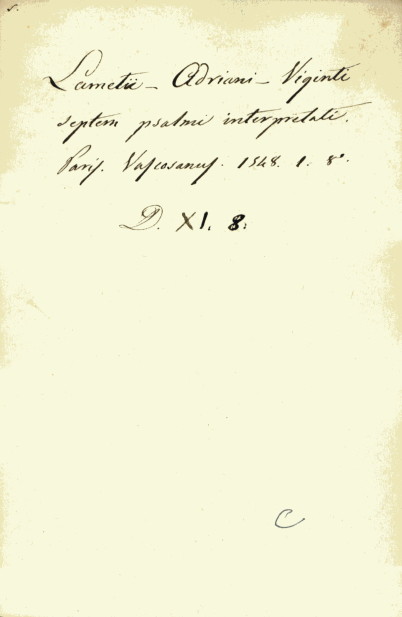 s.
Lametii - Adriani - Viginti
septem psalmi interpretati.
Paris. Vascosanus. 1548. 1. 8°.
D. XI. 8.
C